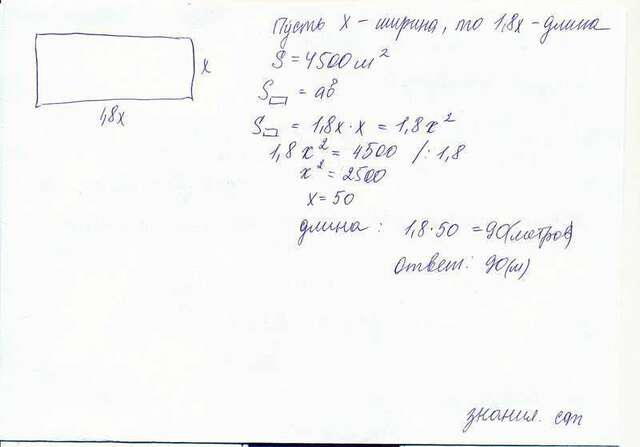 Пусть x - ширина, то 1,8x - длина
x
1,8x
S = 4500 м²
S▭ = ab
S▭ = 1,8x·x = 1,8x²
1,8x² = 4500 /:1,8
x² = 2500
x = 50
длина: 1,8·50 = 90(метров)
Ответ: 90(м)
знания. com